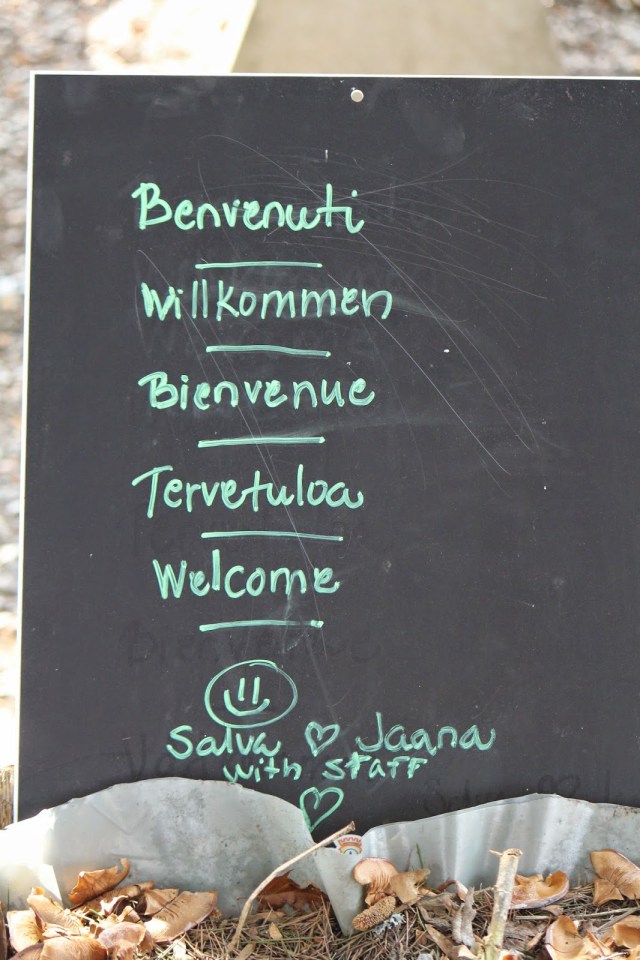 Benvenuti
Willkommen
Bienvenue
Tervetuloa
Welcome
Salva ♡ Jaana
with staff